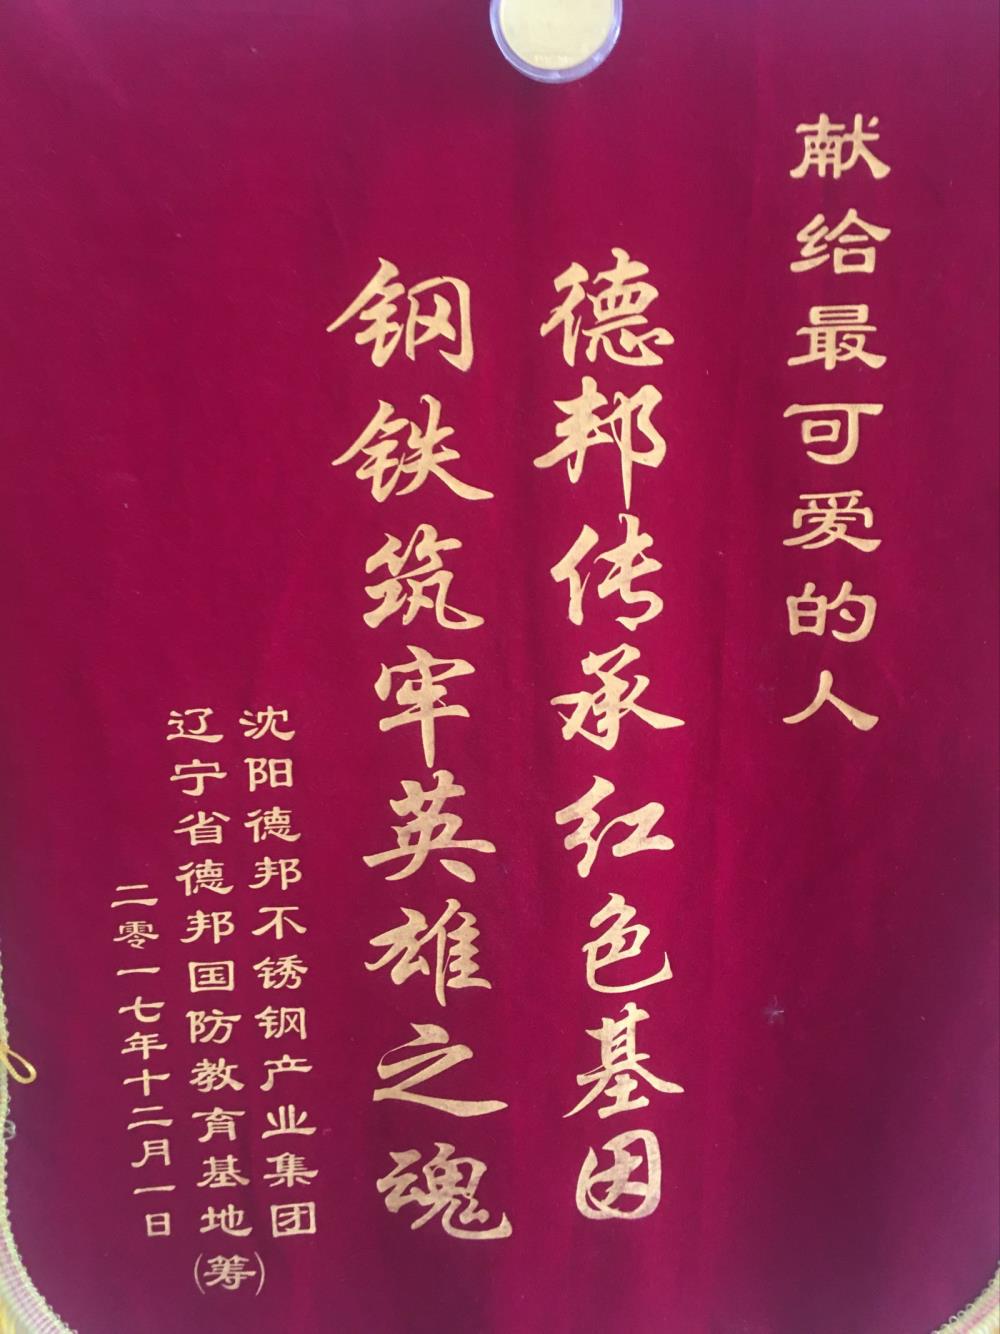 献给最可爱的人
德邦传承红色基因
钢铁筑牢英雄之魂
沈阳德邦不锈钢产业集团
辽宁省德邦国防教育基地(筹)
二零一七年十二月一日